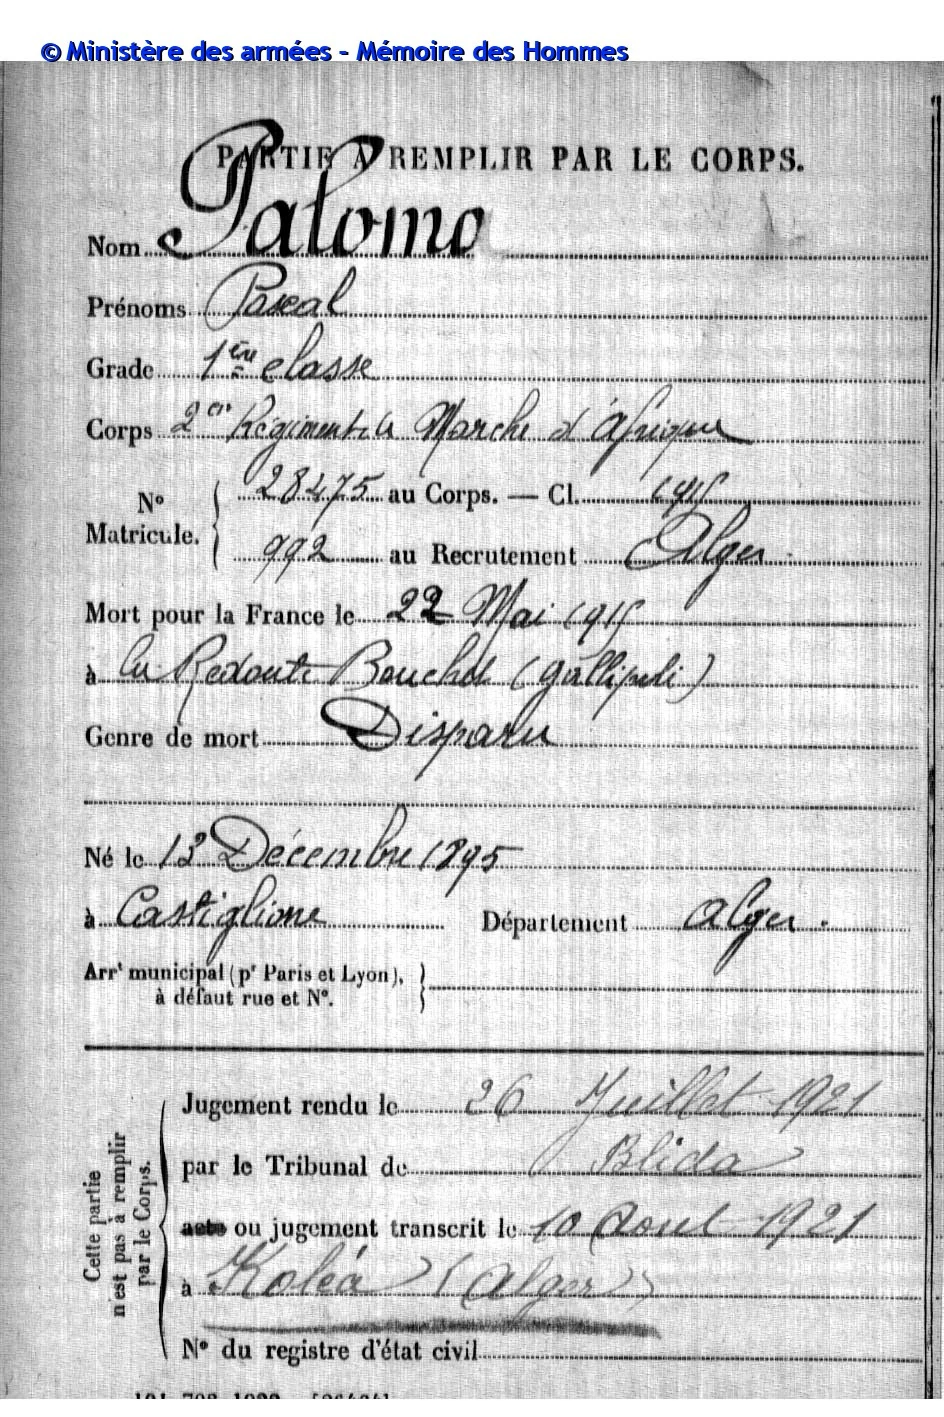 © Ministère des armées - Mémoire des Hommes
PARTIE À REMPLIR PAR LE CORPS.
Nom Palomo
Prénoms Pascal
Grade 1ère classe
Corps 2e Régiment de Marche d'Afrique
N° Matricule. 28475 au Corps. — Cl. 1915
992 au Recrutement Alger
Mort pour la France le 22 Mai 1915
à la Redoute Bouchet (Gallipoli)
Genre de mort Disparu
Né le 13 Décembre 1895
à Castiglione Département Alger.
Arrt municipal (pr Paris et Lyon),
à défaut rue et N°.
Cette partie
n'est pas à remplir
par le Corps.
Jugement rendu le 26 Juillet 1921
par le Tribunal de Blida
acte ou jugement transcrit le 10 Aout 1921
à Koléa (Alger)
N° du registre d'état civil